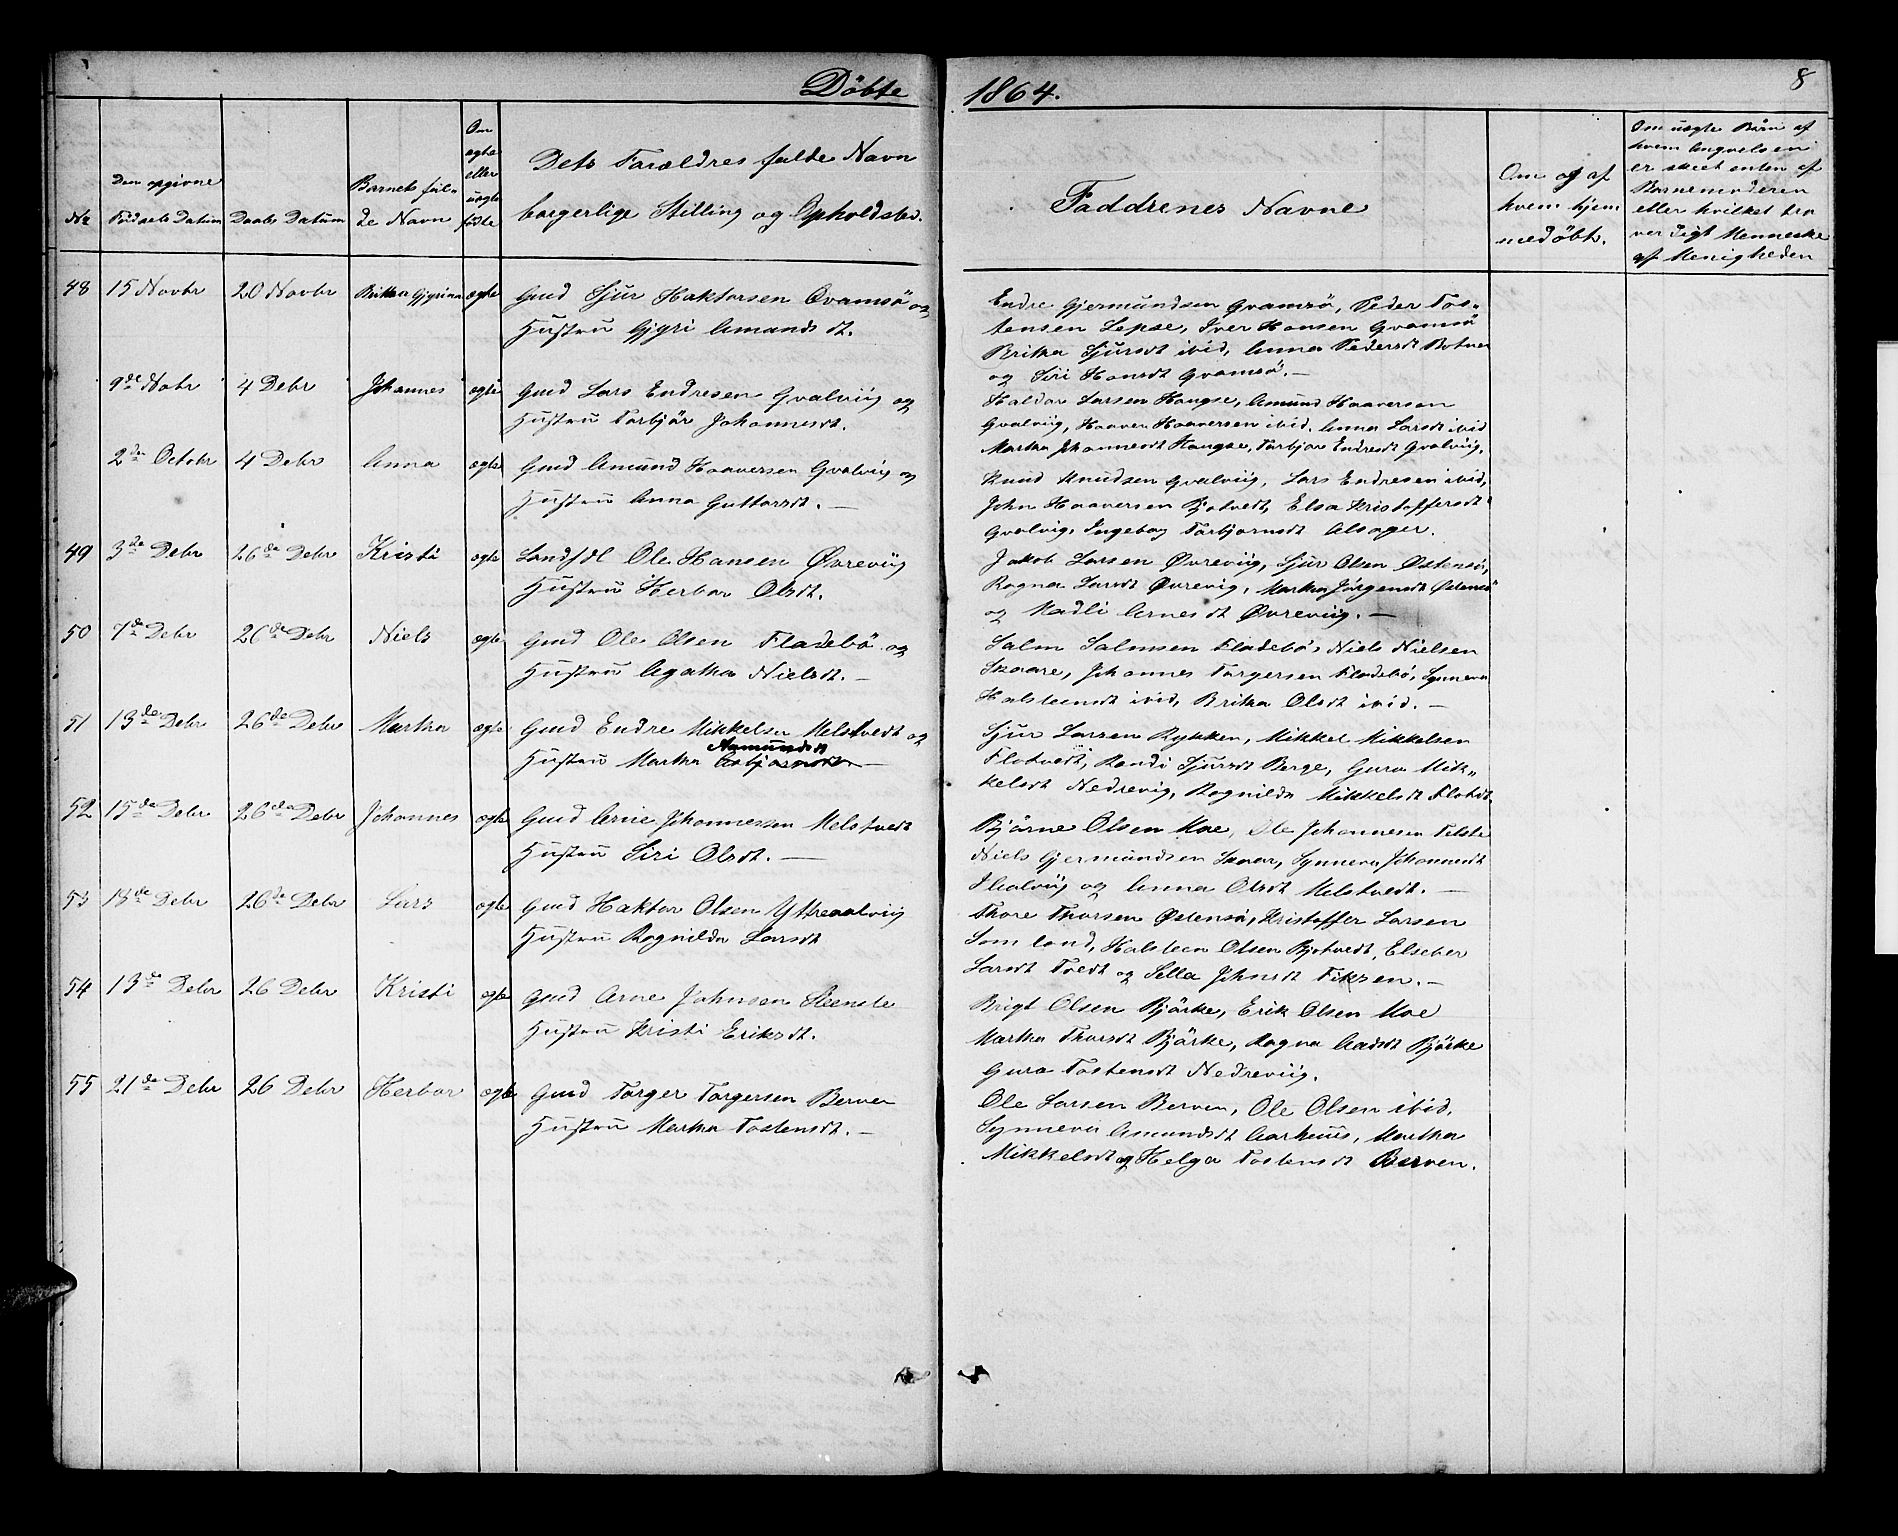 Döbte
1864.
8
No
Den opgivne
Födsels Datum
Daabs Datum
Barnets ful-
de Navn
Om
ægte
eller
uægte
födte
Dets Forældres fulde Navn
borgerlige Stilling og Opholdsted.
Faddrenes Navne
Om og af
hvem hjem
medöbt.
Om uægte Börn af
hvem Angivelsen
er skeet enten af
Barnemoderen
eller hvilket tro
værdigt Menneske
af Menigheden
48 15 Novbr 20 Novbr Britha Gjyrina ægte Gmd Sjur Haktorsen Qvamsö og
Hustru Gjyri Amandsdt.
Endre Gjermundsen Qvamsö, Peder Tos-
tensen Lepsæ, Iver Hansen Qvamsö
Britha Sjursdt ibid, Anna Pedersdt Botnen
og Siri Hansdt Qvamsö. —
9de Nobr 4 Debr Johannes ægte Gmd Lars Endresen Qvalviig og
Hustru Torbjör Johannesdt.
Haldor Larsen Hangse, Amund Haaversen
Qvalviig, Haaver Haaversen ibid. Anna Larsdt ibid
Martha Johannesdt Hangse, Torbjor Endresdt Qvalviig.
2den Octobr 4 Debr Anna ægte Gmd Amund Haaversen Qvalviig og
Hustru Anna Guttorsdt. —
Knud Knudsen Qvalviig, Lars Endresen ibid,
John Haaversen Bjotvedt, Elsa Kristoffersdt
Qvalvig, Ingeborg Torbjornsdt Alsager.
49 3de Debr 26de Debr Kristi ægte Landhdl Ole Hansen Øvreviig
Hustru Herbor Olsdt.
Jakob Larsen Øvreviig, Sjur Olsen Østensö,
Ragna Larsdt Øvrevig, Martha Jörgensdt Østensö
og Madli Arnesdt Øvreviig. —
50 7de Debr 26de Debr Niels ægte Gmd Ole Olsen Fladebö og
Hustru Agatha Nielsdt. —
Salm Salmsen Fladebö, Niels Nielsen
Skaare, Johannes Torgersen Fladebö, Synneva
Halsteensdt ibid, Britha Olsdt ibid. —
51 13de Debr 26de Debr Martha ægte Gmd Endre Mikkelsen Melstvedt og
Aamundsdt
Hustru Martha Asbjornsdt —
Sjur Larsen Rykken, Mikkel Mikkelsen
Flotvedt, Randi Sjursdt Berge, Guro Mik-
kelsdt Nedrevig, Ragnilda Mikkelsdt Flotvdt.
52 15de Debr 26de Debr Johannes ægte Gmd Arne Johannessen Melstvedt
Hustru Siri Olsdt. —
Bjärne Olsen Moe, Ole Johannesen Tolste
Niels Gjermundsen Skaar, Synneva Johannesdt
Aalviig og Anna Olsdt Melstvedt. —
53 13de Debr 26de Debr Lars ægte Gmd Haktor Olsen Ytreaalviig
Hustru Ragnilda Larsdt
Thore Thorsen Østensö, Kristoffer Larsen
Samland, Halsteen Olsen Bjotvedt, Elseber
Larsdt Tvedt og Sella Johnsdt Fiksen. —
54 13de Debr 26 Debr Kristi ægte Gmd Arne Johnsen Steenstø
Hustru Kristi Eriksdt.
Brigt Olsen Bjärke, Erik Olsen Moe
Martha Thorsdt Bjärke, Ragna Aadsdt Bjärke
Guro Tostensdt Nedreviig.
55 21de Debr 26 Debr Herbor ægte Gmd Torger Torgersen Berven
Hustru Martha Tostensdt. —
Ole Larsen Berven, Ole Olsen ibid.
Synneva Amundsdt Aarhuus, Martha
Mikkelsdt og Helga Tostensdt Berven.